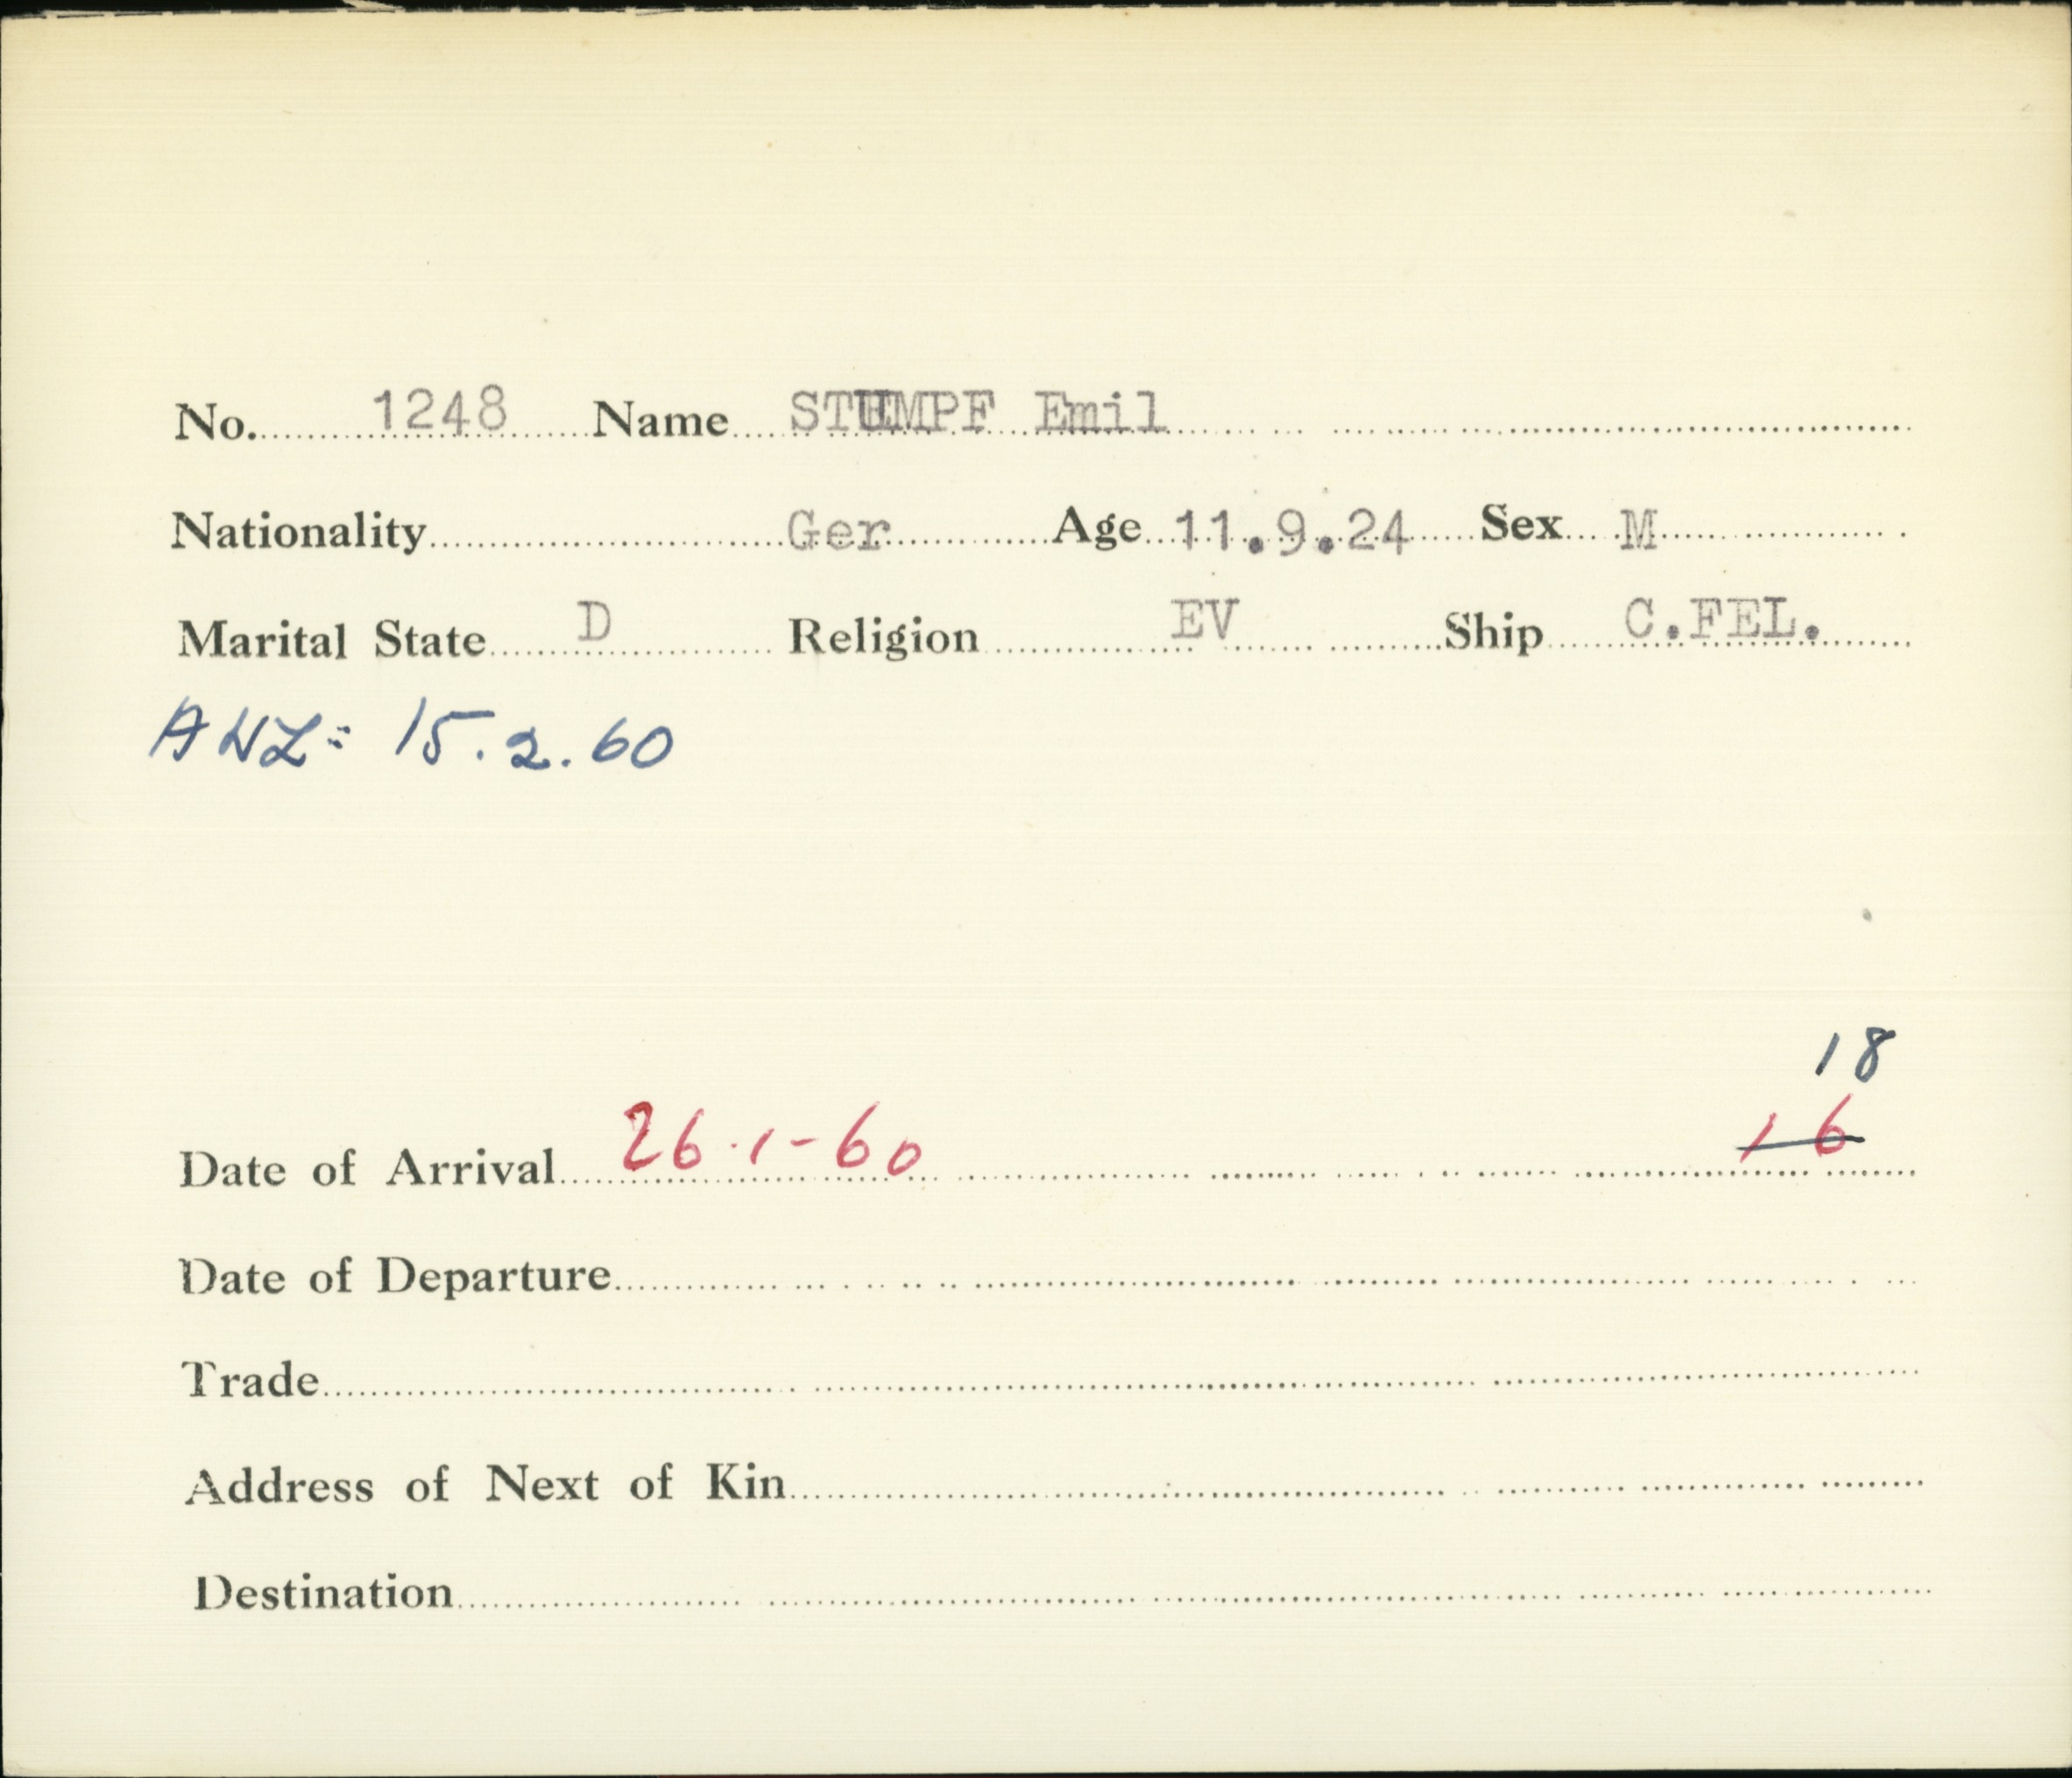 No. 1248 Name STUMPF Emil
Nationality Ger Age 11.9.24 Sex M
Marital State D Religion EV Ship C.FEL.
15.2.60
18
Date of Arrival 26.1-60 16
Date of Departure
Trade
Address of Next of Kin
Destination